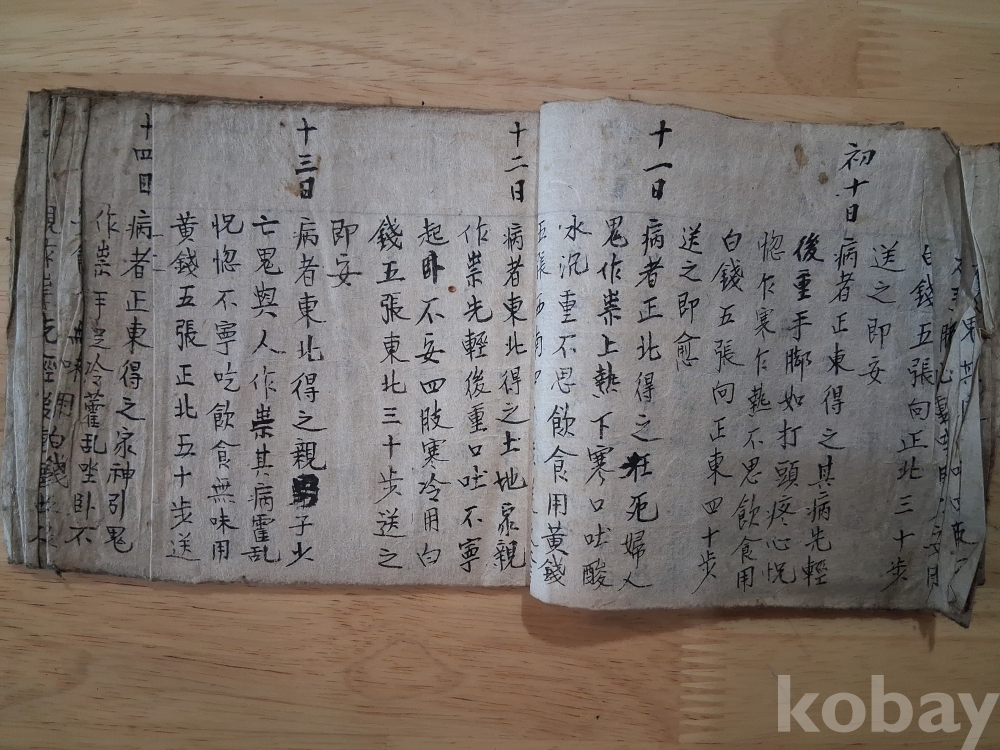 白錢五張向正北三十步
送之即安
初十日
病者正東得之其病先輕
後重手脚如打頭疼心恍
惚乍寒乍熱不思飲食用
白錢五張向正東四十步
送之即愈
十一日
病者正北得之狂死婦人
鬼作祟上熱下寒口吐酸
水沉重不思飲食用黃錢
十二日
病者東北得之土地家親
作祟先輕後重口吐不寧
起卧不安四肢寒冷用白
錢五張東北三十步送之
即安
十三日
病者東北得之親男子少
亡鬼與人作祟其病霍乱
恍惚不寧吃飲食無味用
黃錢五張正北五十步送
十四日
病者正東得之家神引鬼
作祟冷藿乱坐卧不
用白錢
kobay